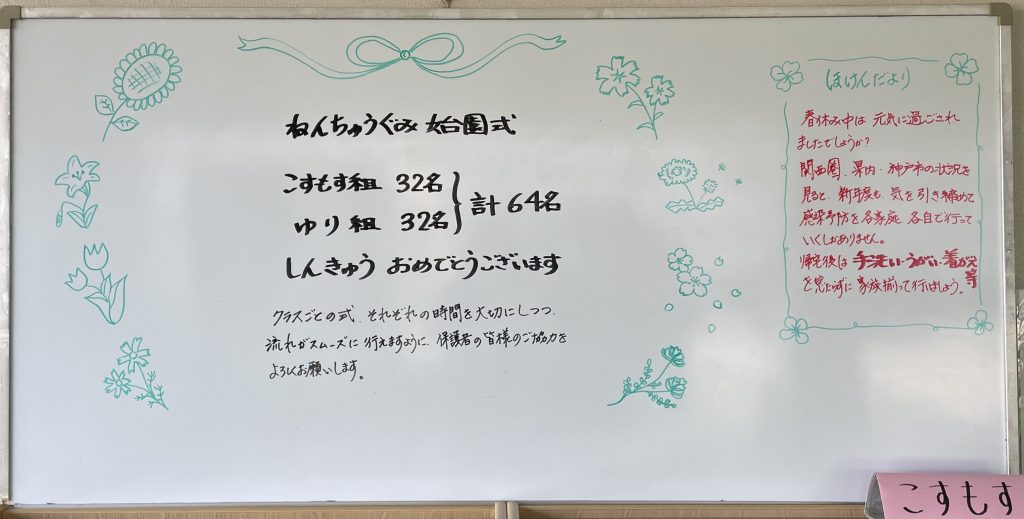 ねんちゅうぐみ 始園式
こすもす組 32名
ゆり組 32名
計 64名
しんきゅう おめでとうございます
クラスごとの式、それぞれの時間を大切にしつつ、
流れがスムーズに行えますように、保護者の皆様のご協力を
よろしくお願いします。
ほけんだより
春休み中は 元気に過ごされ
ましたでしょうか?
関西圏、県内・神戸市の状況を
見ると、新年度も、気を引き締めて
感染予防を各家庭、各自で行って
いくしかありません。
帰宅後は 手洗い・うがい・着がえ等
を忘れずに 家族揃って行いましょう。
こすもす